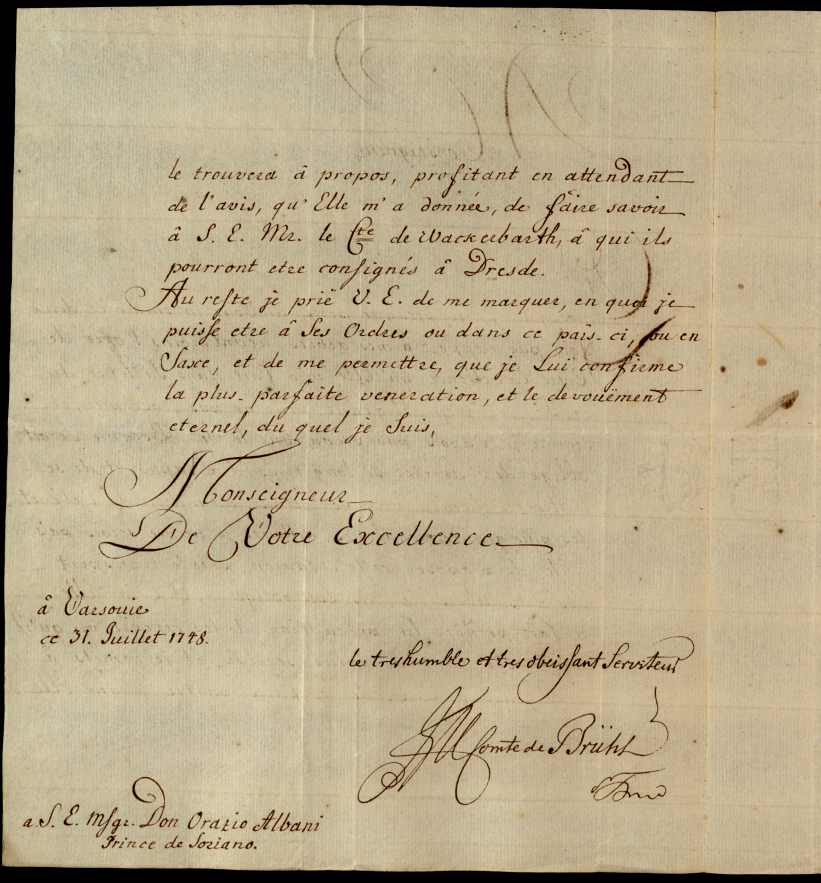 le trouvera â propos, profitant en attendant
de l'avis, qu'Elle m'a donnée, de faire savoir
â S. E. Mr. le Cte de Wackerbarth, â qui ils
pourront etre consignés â Dresde.
Au reste je prië V. E. de me marquer, en quoi je
puisse etre â Ses Ordres ou dans ce païs-ci, ou en
Saxe, et de me permettre, que je Lui confirme
la plus-parfaite veneration, et le devouëment
eternel, du quel je Suis,
Monseigneur
De Votre Excellence
â Varsovie
ce 31. Juillet 1748.
le tres humble et tres obeissant Serviteur
Comte de Brühl
a S. E. Msgr. Don Orazio Albani
Prince de Soriano.